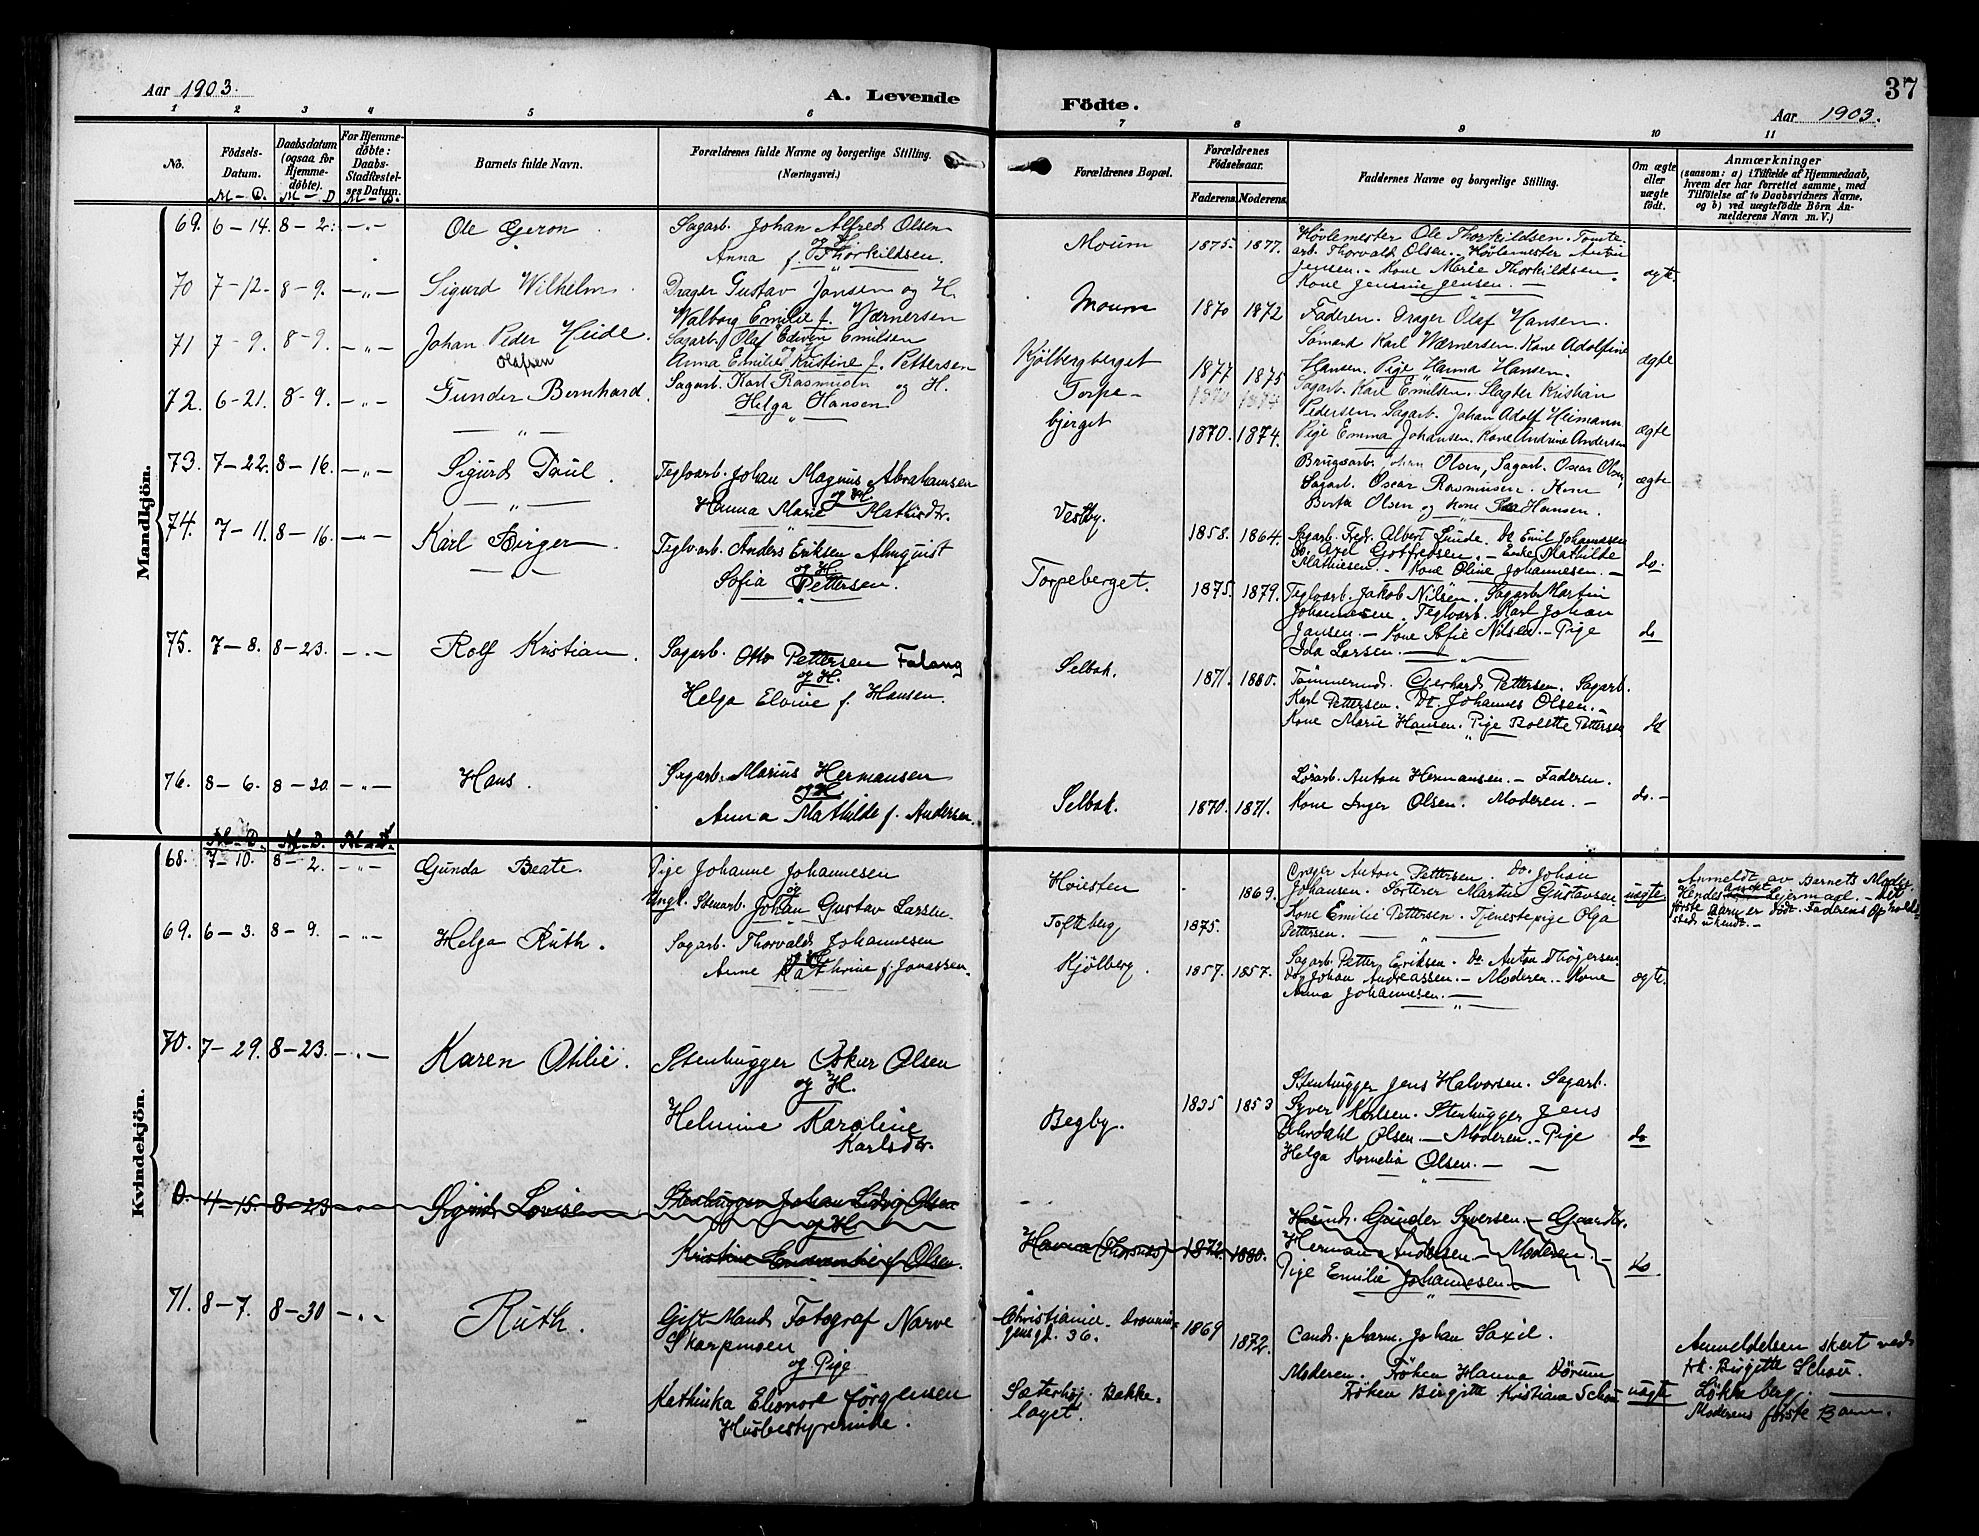 Aar 1903. A. Levende
Födte. 37
Aar 1903.
1 2 3 4 5 6 7 8 9 10 11
No.
Födsels-
Datum.
M – D.
Daabsdatum
(ogsaa for
Hjemme-
döbte).
M – D
For Hjemme-
döbte:
Daabs-
Stadfæstel-
ses Datum.
M – D.
Barnets fulde Navn.
Forældrenes fulde Navne og borgerlige Stilling.
(Næringsvei.)
Forældrenes Bopæl.
Forældrenes
Födselsaar.
Faderens. Moderens.
Faddernes Navne og borgerlige Stilling.
Om ægte
eller
uægte
födt.
Anmærkninger
(saasom: a) i Tilfælde af Hjemmedaab,
hvem der har forrettet samme, med
Tilföielse af to Daabsvidners Navne,
og b) ved uægtefödte Börn An-
melderens Navn m. V.)
Mandkjön.
69. 6–14. 8–2. –"– Ole Geron
Sagarb. Johan Alfred Olsen
og H.
Anna f. Thorkildsen.
Moum 1875. 1877.
Høvlemester Ole Thorkildsen. Tomte-
arb. Thorvald Olsen. – Høvlemester Anton
Jensen. – Kone Marie Thorkildsen
Kone Jensine Jensen. –
ægte.
70 7–12. 8–9. –"– Sigurd Wilhelm.
Drager Gustav Jansen og H.
Walborg Emilie f. Wærnersen
Moum 1870 1872
Faderen. Drager Olaf Hansen.
Sömand Karl Wærnersen. Kone Adolfine
Hansen. Pige Hanna Hansen.
ægte
71 7–9. 8–9. –"– Johan Peder Heide
Olafsen
Sagarb. Olaf Edvin Emilsen
og H.
Anna Emilie Kristine f. Pettersen
Kjölbergberget 1877 1875
Sagarb. Karl Emilsen. Slagter Kristian
Pedersen. Sagarb. Johan Adolf Heimann
Pige Emma Johansen. Kone Andrine Andersen
ægte
72. 6–21. 8–9. –"– Gunder Bernhard.
Sagarb. Karl Rasmussen og H.
Helga Hansen
Torpe-
bjerget 1870. 1874.
Brugsarb. Olsen, Sagarb. Oscar Olsen,
Sagarb. Oscar Rasmussen. Kone
Berta Olsen og Kone Hansen.
ægte
73. 7–22. 8–16. –"– Sigurd Paul.
Teglvarb. Johan Magnus Abrahamsen
og H.
Hanna Marie Mathisdtr.
Vestby. 1858. 1864.
Sagarb. Fedr. Albert Lunde. Do Emil Johannesen
Do. Axel Gotfredsen. – Enke Mathilde
Mathiesen. – Kone Oline Johannesen. –
do.
74. 7–11. 8–16. –"– Karl Birger
Teglvarb. Anders Eriksen Almquist
og H.
Sofia Pettersen.
Torpeberget. 1875. 1879.
Teglvarb. Jakob Nilsen. Sagarb. Martin
Johannesen. Teglvarb. Karl Johan
Jansen. – Kone Sofie Nilsen. – Pige
Ida Larsen. –
do
75. 7–8. 8–23. –"– Rolf Kristian.
Sagarb. Otto Pettersen Falang
og H.
Helga Elvine f. Hansen.
Selbak. 1871. 1880.
Tömmermd. Gerhard Pettersen. Sagarb.
Karl Pettersen. Do. Johannes Olsen. –
Kone Marie Hansen. Pige Bolette Pettersen
do
76. 8–6. 8–20. –"– Hans.
Sagarb. Marius Hermansen
og H.
Anna Mathilde f. Andersen.
Selbak. 1870. 1871.
Lösarb. Anton Hermansen. – Faderen.
Kone Inger Olsen. Moderen. –
do. –
Kvindekjön.
M – D. M – D. M – D.
68. 7–10. 8–2. –"– Gunda Beate.
Pige Johanne Johannesen
og
Ungk. Stenarb. Johan Gustav Larsen.
Hoiesten 1869.
Tofteberg 1875.
Drager Anton Pettersen. Do. Johan
Johansen. Sorterer Martin Gustavsen
Kone Emilie Pettersen. Tjenestepige Olga
Pettersen. –
uægte
Anmeldt av Barnets Moder.
Hendes andet Leiermaal. – Det
første Barn er dödt. Faderens Opholds
sted ukendt. –
69. 6–3. 8–9. –"– Helga Ruth.
Sagarb. Thorvald Johannesen
og H.
Anne Kathrine f. Jonassen.
Kjölberg. 1857. 1857.
Sagarb. Petter Eriksen. Do. Anton Thögersen.
Do Johan Andreassen. – Moderen. – Kone
Anna Johannesen. –
ægte.
70. 7–29. 8–23. –"– Karen Otilie.
Stenhugger Oskar Olsen
og H.
Helmine Karoline
Karlsdtr.
Begby. 1835 1853
Stenhugger Jens Halvorsen. Sagarb.
Syver Karlsen. Stenhugger Jens
Olsen. – Moderen. – Pige
Helga Kornelia Olsen. –
do
0. 4–15. 8–23 –"– Sigrid Lovise
Stenhugger Johan Ludvig Olsen
og H
Kristine f. Olsen.
Havna (Thorsnes) 1872. 1880.
Husmd. Gunder Syversen. – Gaardbr.
Herman Andersen – Moderen. –
Pige Emilie Johannesen –
do
71. 8–7. 8–30 –"– Ruth.
Gift Mand Fotograf Narve
Skarpmoen
og Pige
Kathinka Elionore Jörgensen
Husbestyrerinde.
Christiania. Dronnin-
gensgd. 36. 1869
Sæterhøj. Bække-
laget. 1872.
Cand. pharm. Johan Saxil.
Moderen. Fröken Hanna Dörum
Fröken Birgitte Kristiane Schau
uægte
Anmeldelsen skeet ved
frk. Birgitte Schau.
Løkkeberg. –
Moderens første Barn.